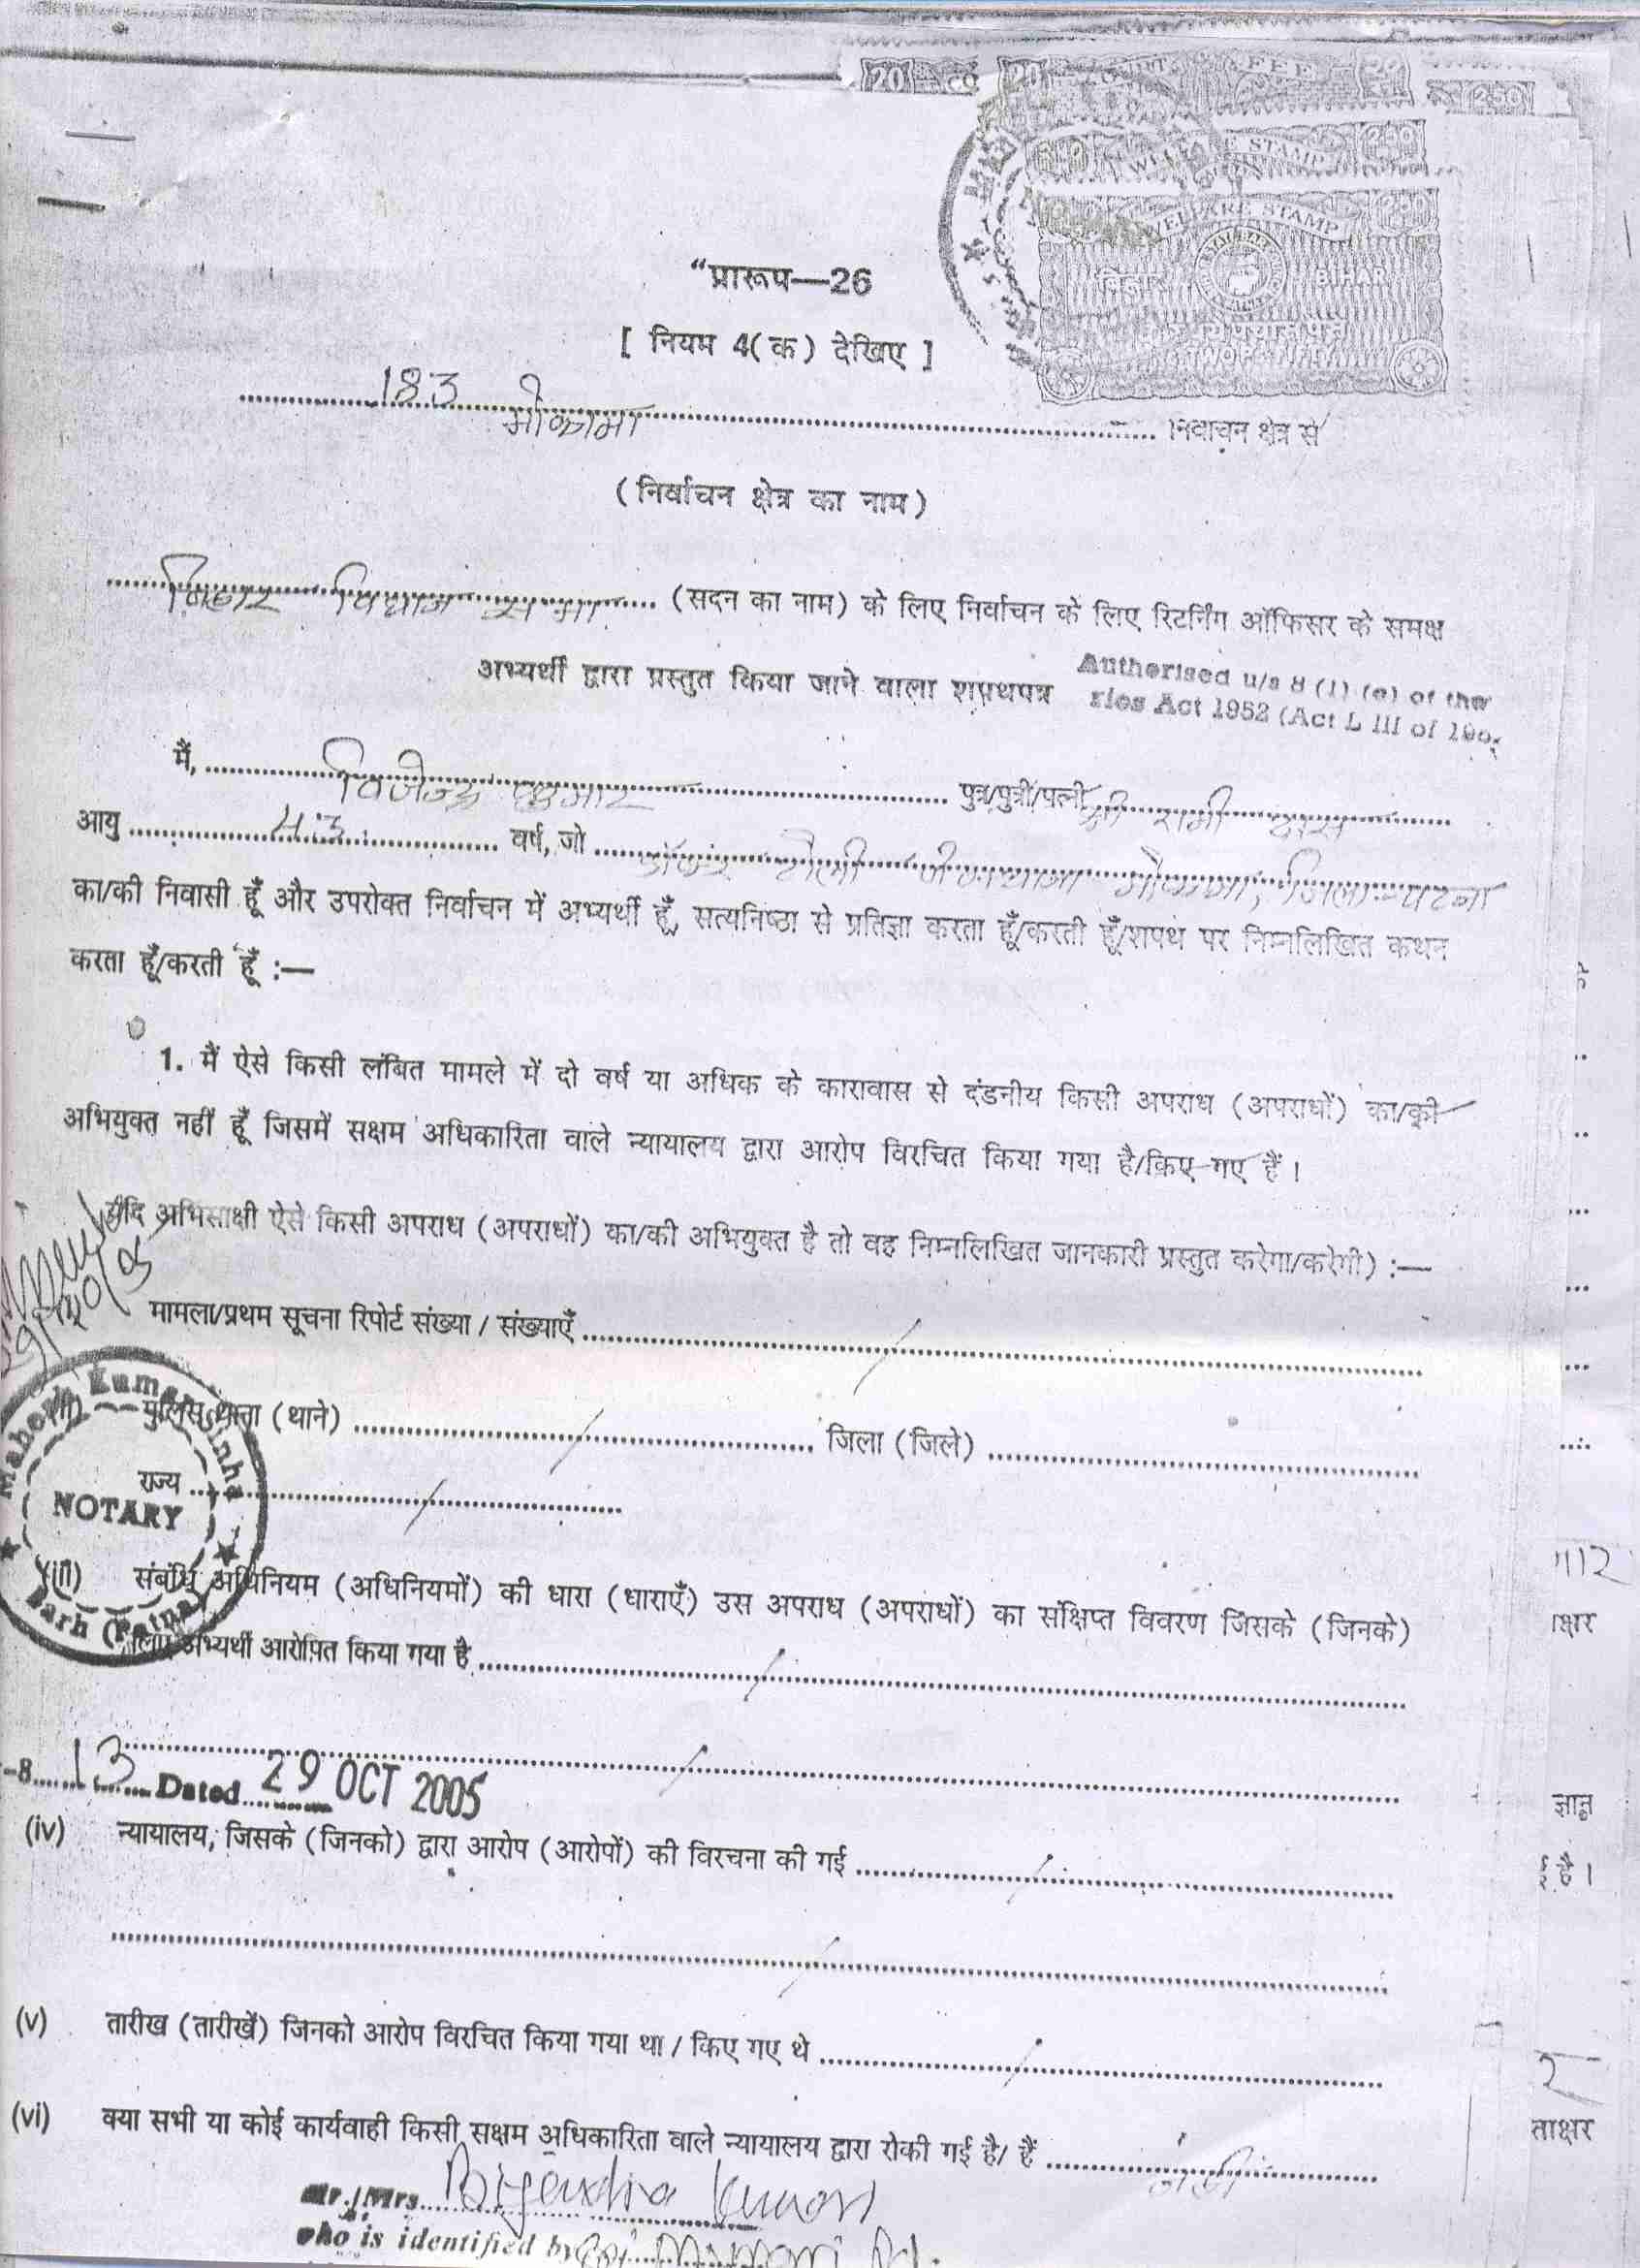 20 20 COURT FEE 20
250
WELFARE STAMP 250
WELFARE STAMP 250
बिहार BIHAR
TWO P. FIFTY
“प्रारूप—26
[ नियम 4(क) देखिए ]
183 मोकामा निर्वाचन क्षेत्र से
(निर्वाचन क्षेत्र का नाम)
बिहार विधान सभा (सदन का नाम) के लिए निर्वाचन के लिए रिटर्निंग ऑफिसर के समक्ष
अभ्यर्थी द्वारा प्रस्तुत किया जाने वाला शपथपत्र
Authorised u/s 8 (1) (e) of the
ries Act 1952 (Act L III of 190
मैं, विजेन्द्र कुमार पुत्र/पुत्री/पत्नी श्री रामी दास
आयु 43 वर्ष, जो शंकर टोली मोकामा, जिला-पटना
का/की निवासी हूँ और उपरोक्त निर्वाचन में अभ्यर्थी हूँ, सत्यनिष्ठा से प्रतिज्ञा करता हूँ/करती हूँ/शपथ पर निम्नलिखित कथन
करता हूँ/करती हूँ :—
1. मैं ऐसे किसी लंबित मामले में दो वर्ष या अधिक के कारावास से दंडनीय किसी अपराध (अपराधों) का/की
अभियुक्त नहीं हूँ जिसमें सक्षम अधिकारिता वाले न्यायालय द्वारा आरोप विरचित किया गया है/किए गए हैं ।
यदि अभिसाक्षी ऐसे किसी अपराध (अपराधों) का/की अभियुक्त है तो वह निम्नलिखित जानकारी प्रस्तुत करेगा/करेगी) :—
मामला/प्रथम सूचना रिपोर्ट संख्या / संख्याएँ
(ii) पुलिस थाना (थाने) जिला (जिले)
राज्य
Mahesh Kumar Sinha
NOTARY
Barh (Patna)
(iii) संबंधि अधिनियम (अधिनियमों) की धारा (धाराएँ) उस अपराध (अपराधों) का संक्षिप्त विवरण जिसके (जिनके)
लिए अभ्यर्थी आरोपित किया गया है
-8 13 Dated 29 OCT 2005
(iv) न्यायालय, जिसके (जिनको) द्वारा आरोप (आरोपों) की विरचना की गई
(v) तारीख (तारीखें) जिनको आरोप विरचित किया गया था / किए गए थे
(vi) क्या सभी या कोई कार्यवाही किसी सक्षम अधिकारिता वाले न्यायालय द्वारा रोकी गई है/ हैं नहीं
Mr./Mrs. Bijendra Kumar
who is identified by
क्षर
ई है ।
ताक्षर